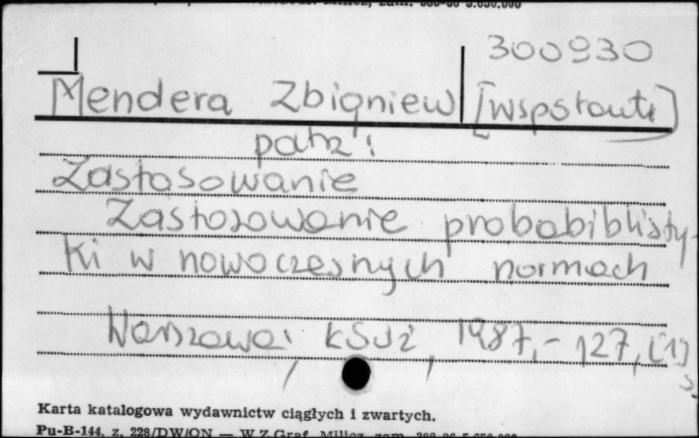 300930
Mendera Zbigniew [wspołaut]
patrz:
Zastosowanie
Zastosowanie probabiblisty-
ki w nowoczesnych normach
Warszawa: KSUZ, 1987, - 127, [1]
s.
Karta katalogowa wydawnictw ciągłych i zwartych.
Pu-B-144, z. 228/DW/ON — W.Z.Graf. Milicz, zam.